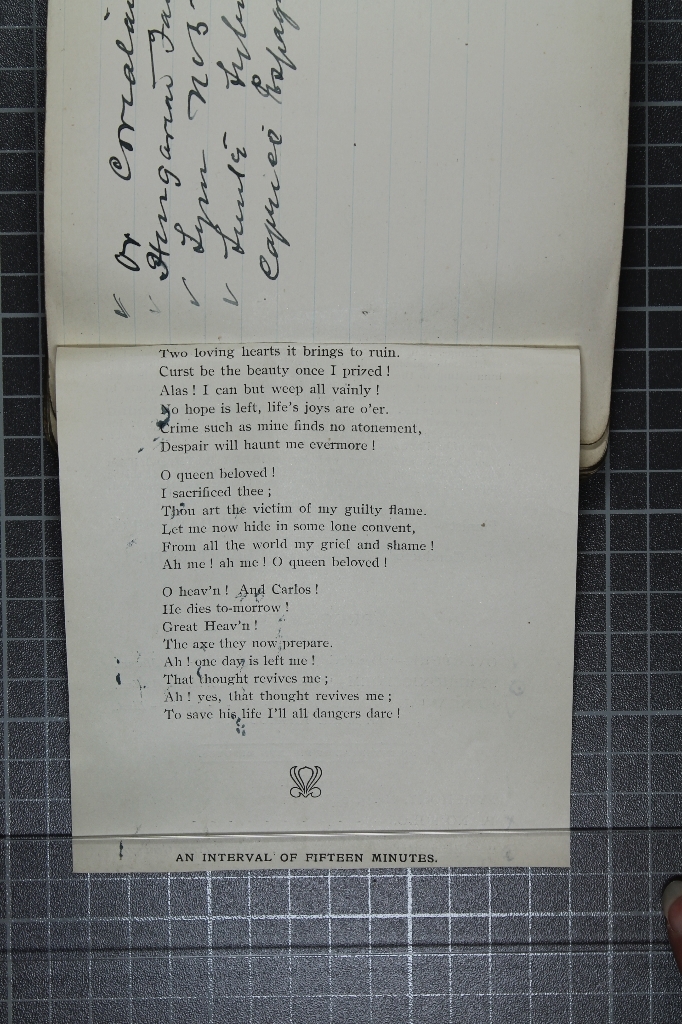 Or Coriolan
Hungarian
Lym No 3
Suite
Caprice Espag
Two loving hearts it brings to ruin.
Curst be the beauty once I prized !
Alas ! I can but weep all vainly !
No hope is left, life's joys are o'er.
Crime such as mine finds no atonement,
Despair will haunt me evermore !
O queen beloved !
I sacrificed thee ;
Thou art the victim of my guilty flame.
Let me now hide in some lone convent,
From all the world my grief and shame !
Ah me ! ah me ! O queen beloved !
O heav'n ! And Carlos !
He dies to-morrow !
Great Heav'n !
The axe they now prepare.
Ah ! one day is left me !
That thought revives me ;
Ah ! yes, that thought revives me ;
To save his life I'll all dangers dare !
AN INTERVAL OF FIFTEEN MINUTES.